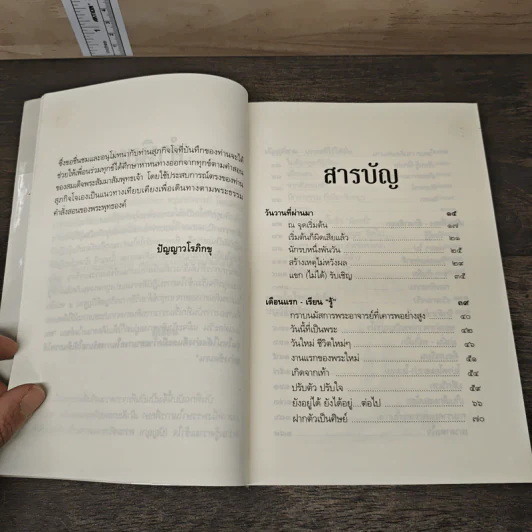 ซึ่งขอชื่นชมและอนุโมทนากับท่านสุภกิจโจที่บันทึกของท่านจะได้
ช่วยให้เพื่อนร่วมทุกข์ได้ศึกษาหาหนทางออกจากทุกข์ตามคำสอน
ของสมเด็จพระสัมมาสัมพุทธเจ้า โดยใช้ประสบการณ์ตรงของท่าน
สุภกิจโจเองเป็นแนวทางเทียบเคียงเพื่อเดินทางตามพระธรรม
คำสั่งสอนของพระพุทธองค์
ปัญญาวโรภิกขุ
สารบัญ
วันวานที่ผ่านมา ๑๕
ณ จุดเริ่มต้น ๑๗
เริ่มต้นก็ผิดเสียแล้ว ๒๑
นักรบหนึ่งพันวัน ๒๕
สร้างเหตุไม่หวังผล ๒๙
แขก (ไม่ได้) รับเชิญ ๓๕
เดือนแรก - เรียน "รู้" ๓๙
กราบนมัสการพระอาจารย์ที่เคารพอย่างสูง ๔๐
วันนี้ที่เป็นพระ ๔๒
วันใหม่ ชีวิตใหม่ๆ ๔๖
งานแรกของพระใหม่ ๕๑
เกิดจากเท้า ๕๔
ปรับตัว ปรับใจ ๕๙
ยังอยู่ได้ ยังได้อยู่...ต่อไป ๖๖
ฝากตัวเป็นศิษย์ ๗๐